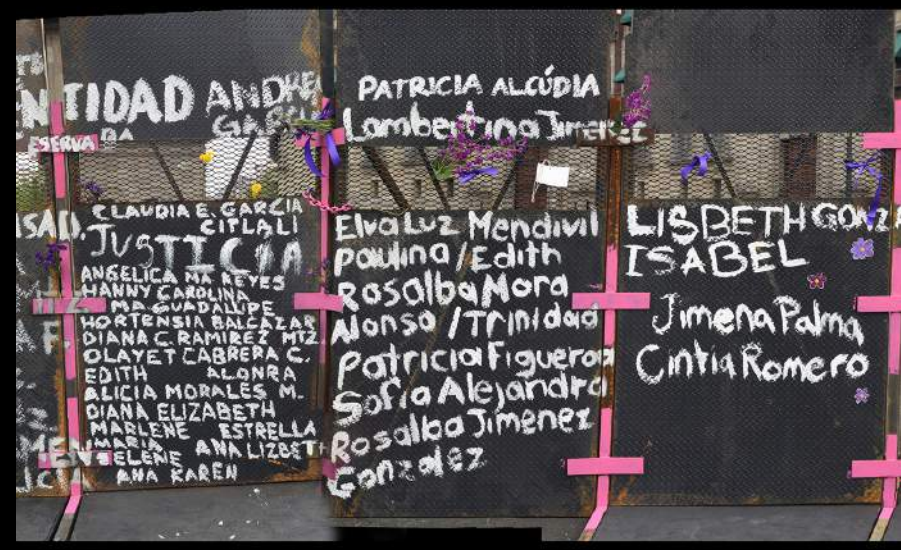 TIDAD ANDRE
ESERVA
CLAUDIA E. GARCIA
CITLALI
JUSTICIA
ANGELICA MA REYES
HANNY CAROLINA
MA. GUADALUPE
HORTENSIA BALCAZAR
DIANA C. RAMIREZ MTZ.
OLAYET CABRERA C.
EDITH ALONRA
ALICIA MORALES M.
DIANA ELIZABETH
MARLENE ESTRELLA
MARIA ANA LIZBET
SELENE
ANA KAREN
PATRICIA ALCÚDIA
Lambertina Jimenez
Elva Luz Mendivil
Paulina / Edith
Rosalba Mora
Alonso / Trinidad
Patricia Figueroa
Sofia Alejandra
Rosalba Jimenez
Gonzalez
LISBETH GONZA
ISABEL
Jimena Palma
Cintia Romero